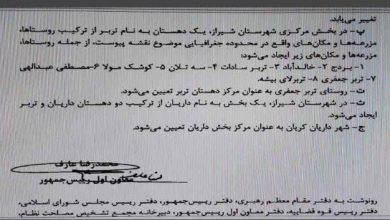 تغییر می‌یابد.
پ- در بخش مرکزی شهرستان شیراز، یک دهستان به نام تربر از ترکیب روستاها،
مزرعه‌ها و مکان‌های واقع در محدوده جغرافیایی موضوع نقشه پیوست، از جمله روستاها،
مزرعه‌ها و مکان‌های زیر ایجاد می‌شود:
۱- بردج ۲- خالدآباد ۳- تربر سادات ۴- سه تلان ۵- کوشک مولا ۶- مصطفی عبدالهی
۷- تربر جعفری ۸- تربرلای بیشه.
ت- روستای تربر جعفری به عنوان مرکز دهستان تربر تعیین می‌شود.
ث- در شهرستان شیراز، یک بخش به نام داریان از ترکیب دو دهستان داریان و تربر
ایجاد می‌شود.
ج- شهر داریان کربان به عنوان مرکز بخش داریان تعیین می‌شود.
محمدرضا عارف
معاون اول رییس‌جمهور
رونوشت به دفتر مقام معظم رهبری، دفتر رییس‌جمهور، دفتر رییس مجلس شورای اسلامی،
دفتر رییس قوه قضاییه، دفتر معاون اول رییس‌جمهور، دبیرخانه مجمع تشخیص مصلحت نظام،